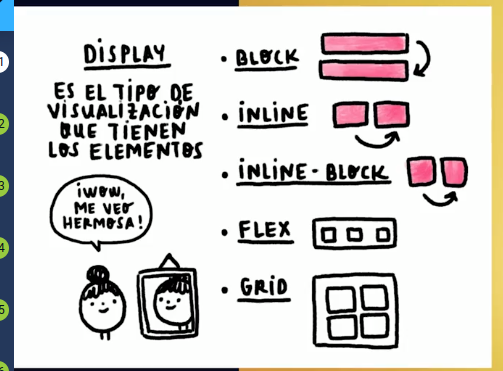 DISPLAY
ES EL TIPO DE
VISUALIZACIÓN
QUE TIENEN
LOS ELEMENTOS
¡WOW,
ME VEO
HERMOSA!
• BLOCK
• INLINE
• INLINE-BLOCK
• FLEX
• GRID
1
2
3
4
5